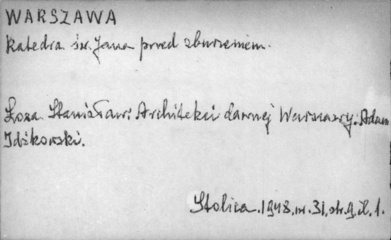 WARSZAWA
Katedra św. Jana przed zburzeniem.
Łoza Stanisław: Architekci dawnej Warszawy. Adam
Idźkowski.
Stolica. 1948, nr. 31, str. 9, il. 1.